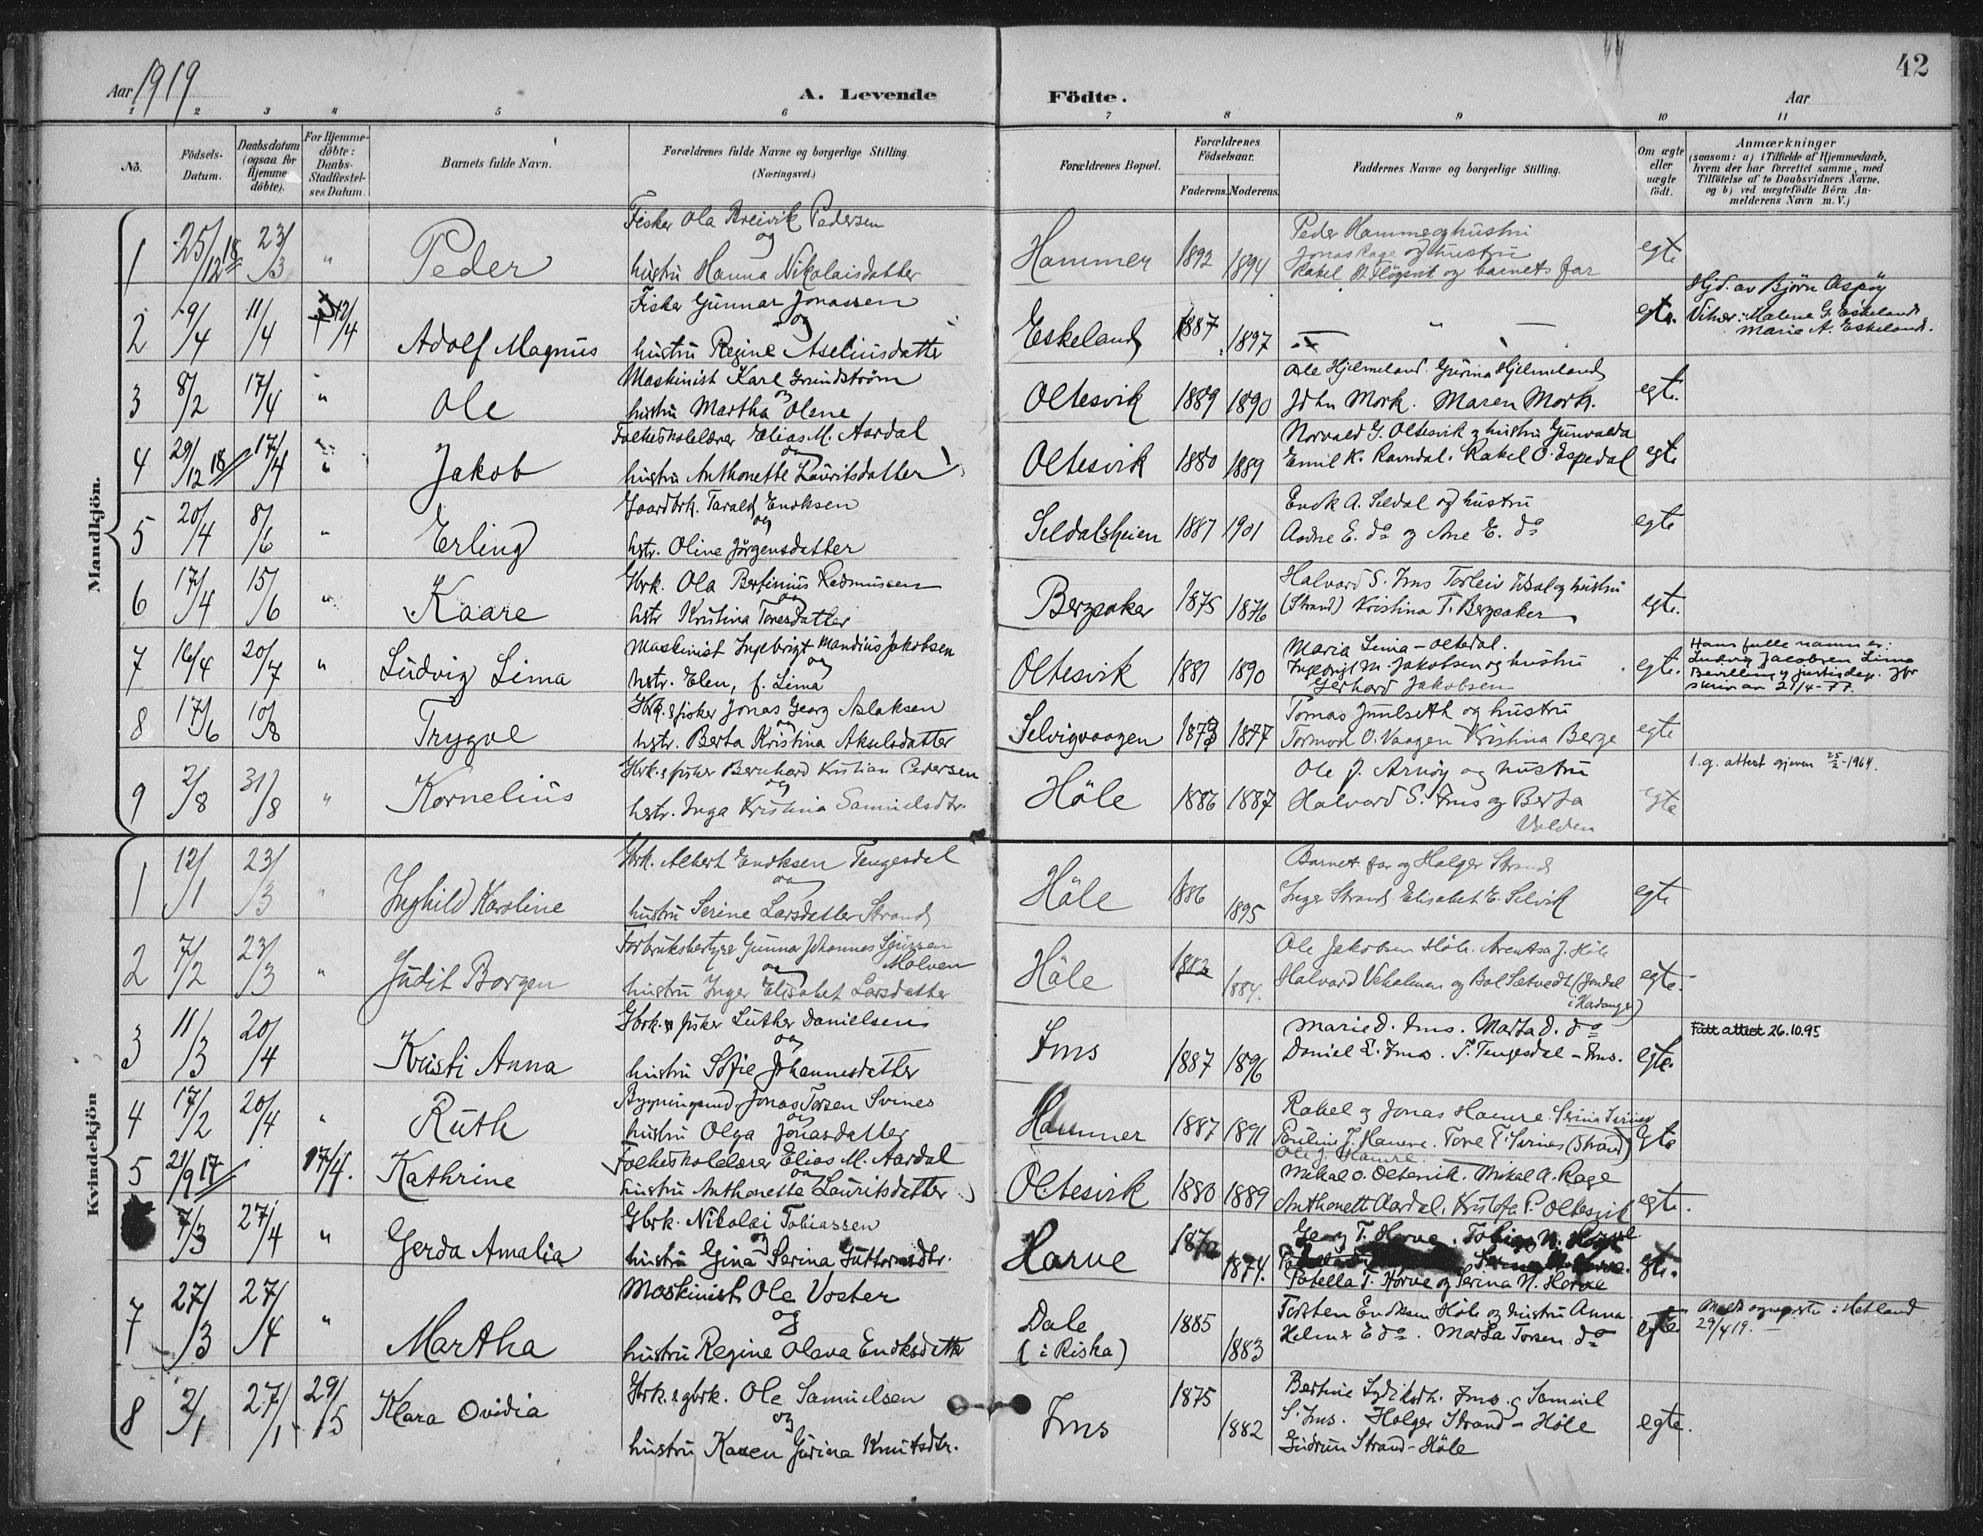 42
Aar 1919
A. Levende
Födte.
Aar
1 2 3 4 5 6 7 8 9 10 11
No.
Födsels-Datum.
Daabsdatum (ogsaa for Hjemme döbte).
For Hjemme-döbte: Daabs-Stadfæstelses Datum.
Barnets fulde Navn.
Forældrenes fulde Navne og borgerlige Stilling. (Næringsvei.)
Forældrenes Bopæl.
Forældrenes Födselsaar.
Faderens. Moderens.
Faddernes Navne og borgerlige Stilling.
Om ægte eller uægte födt.
Anmærkninger
(saasom: a) i Tilfælde af Hjemmedaab, hvem der har forrettet samme, med Tilföielse af to Daabsvidners Navne, og b) ved uægtefödte Börn Anmelderens Navn m. V.)
Mandkjön.
1 25/12 18 23/3 " Peder
Fisker Ola Breivik Pedersen
og
hustru Hanna Nikolaisdatter
Hammer 1892 1894
Peder Hammer og hustru
Jonas Rage og hustru
Rakel og barnets far
egte
2 9/4 11/4 12/4 Adolf Magnus
Fisker Gunnar Jonassen
og
hustru Regine Aseliusdatter
Eskeland 1887 1897 — " —
egte.
Hjd. av Björn Aspöy
Vitner: Malene G. Eskeland
Maria A. Eskeland.
3 8/2 17/4 " Ole
Maskinist Karl Grundström
og
hustru Martha Olene
Oltesvik 1889 1890
Ole Hjelmeland. Gurina Hjelmeland
John Mork. Maren Mork.
egte.
4 29/12 18 17/4 " Jakob
Folkeskolelærer Elias M. Aardal
og
hustru Anthonette Lauritsdatter
Oltesvik 1880 1889
Norvald G. Oltesvik og hustru Gunvalda
Emil K. Ravndal. Rakel O. Espedal
egte
5 20/4 8/6 " Erling
Gaardbrk. Tarald Enoksen
og
hstr. Oline Jörgensdatter
Seldalsheien 1887 1901
Enok A. Seldal og hustru
Aadne E. do og Ane E. do
egte
6 17/4 15/6 " Kaare
Gbrk. Ola Bertinius Rasmussen
og
hstr Kristina Toresdatter
Bergsaker 1875 1876
Halvard S. Ims Torleiv Idsal og hustru
(Strand) Kristina T. Bergsaker
egte.
7 16/4 20/7 " Ludvig Lima
Maskinist Ingebrigt Mandius Jakobsen
og
hstr. Elen, f. Lima
Oltesvik 1881 1890
Maria Lima - Oltedal.
Ingebrigt M. Jakobsen og hustru
Gerhard Jakobsen
egte.
Hans fulle namn er:
Ludvig Jacobsen Lima
Bevilling justisdep. jfr
skriv av 21/4-77.
8 17/6 10/8 Trygve
Gbrk. & fisker Jonas Georg Aslaksen
og
hstr. Berta Kristina Akselsdatter
Selvigvaagen 1873 1877
Tomas Juulseth og hustru
Tormod O. Vaagen Kristina Berge
egte
9 2/8 31/8 " Kornelius
Gbrk. & fisker Bernhard Kristian Pedersen
og
hstr. Inga Kristina Samuelsdtr.
Höle 1886 1887
Ole J. Arnöy og hustru
Halvard S. Ims og Berta
Valden
egte
1. g. attest gjeven 25/2-1964.
Kvindekjön
1 12/1 23/3 " Inghild Karoline
Gbrk. Albert Enoksen Tengesdal
og
hustru Serine Larsdatter Strand
Höle 1886 1895
Barnets far og Holger Strand
Inger Strand Elisabet E. Selvik
egte
2 7/2 23/3 " Judit Borgen
Forbruksbestyrer Gunnar Johannes Sjursen
Molven
og
hustru Inger Elisabet Larsdatter
Höle 1882 1884.
Ole Jakobsen Höle. Arentsa J. Höle
Halvard Veholmen og Bol Sætvedt (Jondal
i Hardanger)
egte.
3 11/3 20/4 Kristi Anna
Gbrk. & fisker Luther Danielsen
og
hustru Sofie Johannesdatter
Ims 1887 1896
Marie D. Ims. Marta D. do
Daniel E. Ims. T. Tengesdal - Ims.
egte.
Fått attest 26.10.95
4 17/2 20/4 " Ruth
Bygningssnd. Jonas Torsen Svines
og
hustru Olga Jonasdatter
Hammer 1887 1891
Rakel og Jonas Hamre. Serina Svines
Pauline J. Hamre. Tore T. Svines (Strand)
Ole J. Hamre.
egte
5 21/9 17 17/4. Kathrine
Folkeskolelærer Elias M. Aardal
og
hustru Anthonette Lauritsdatter
Oltesvik 1880 1889
Mikal O. Oltesvik. Mikal A. Rage
Anthonett Aardal. Kristofa P. Oltesvik
egte.
7/3 27/4 " Gerda Amalia
Gbrk. Nikolai Tobiassen
og
hustru Gina Serina Guttormsdtr.
Horve 1872 1874.
Georg T. Horve. Tobias N. Horve
Petella T. Horve og Serina N. Horve
egte.
7 27/3 27/4 " Martha
Maskinist Ole Voster
og
hustru Regine Olava Enoksdatter
Dale
(i Riska) 1885 1883
Torsten Enoksen Höle og hustru Anna.
Helmer E do. Marta Torsen do
egte
Meldt sogneprest i Hetland
29/4 19.
8 2/1 27/1 29/5 Klara Ovidia
Gbrk. & gbrk. Ole Samuelsen
og
hustru Karen Gurina Knutsdtr.
Ims 1875 1882
Bertine Ims og Samuel
S. Ims. Holger Strand - Höle
Gudrun Strand - Höle
egte.